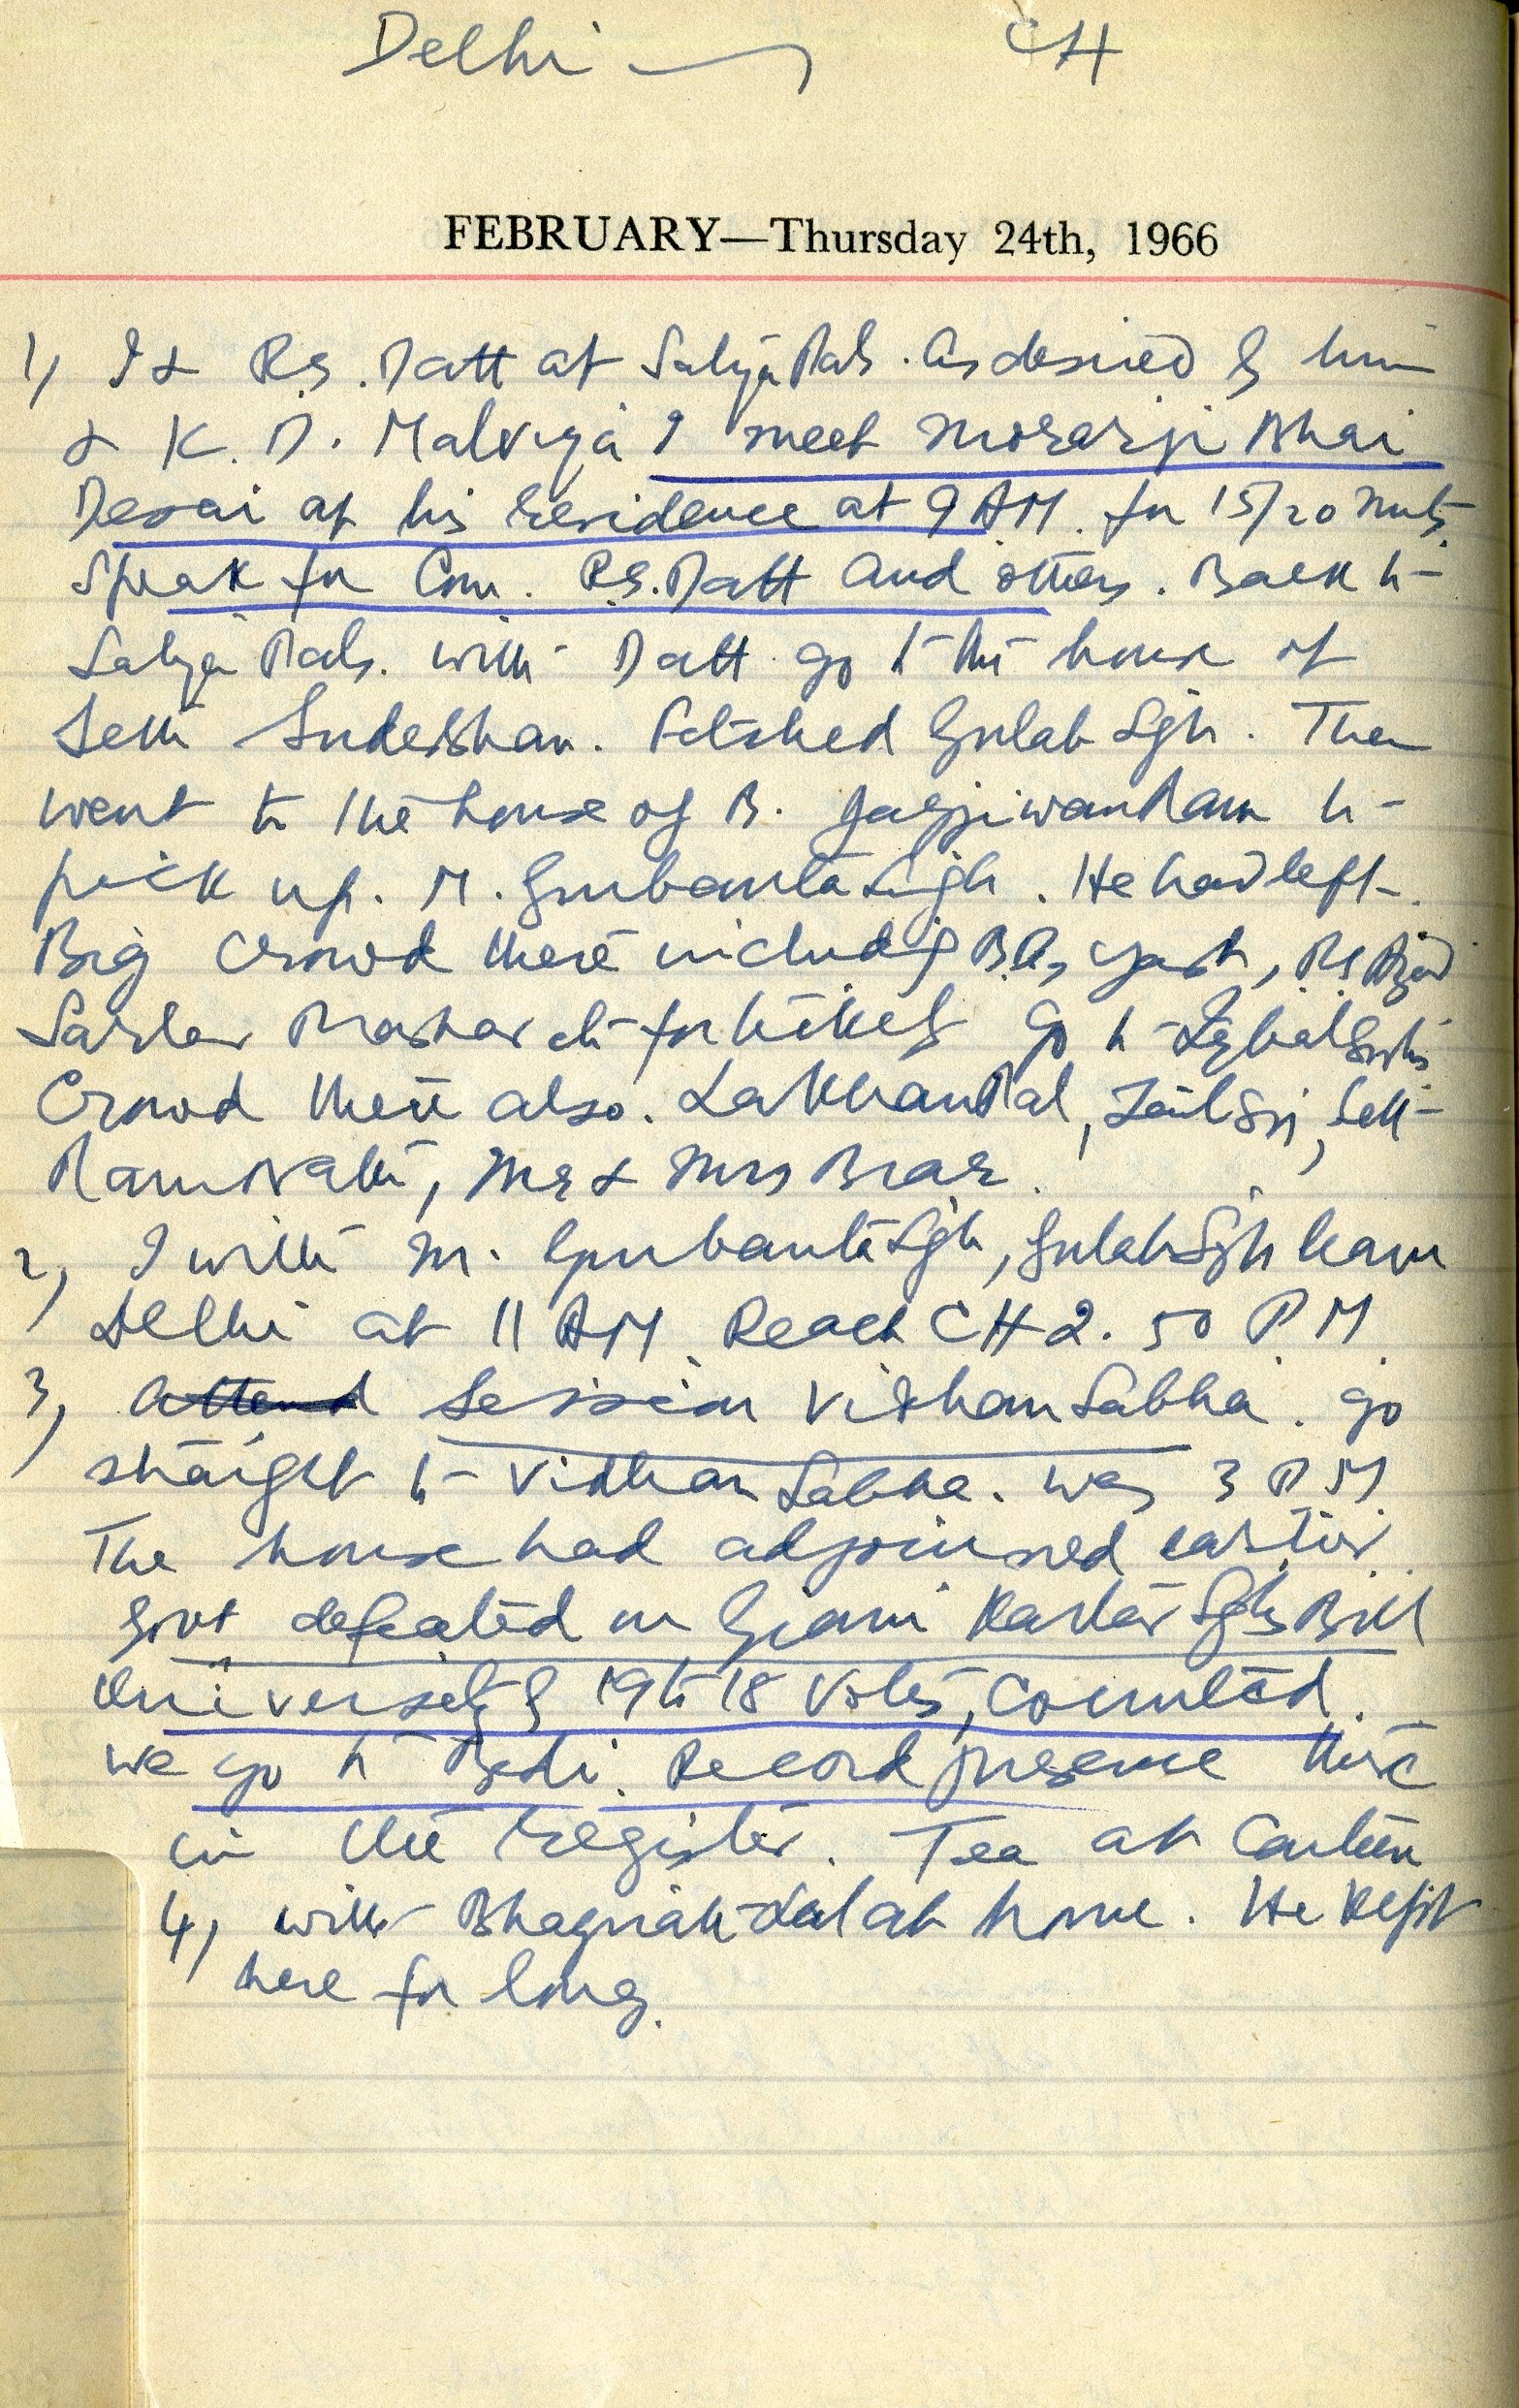 Delhi — CH
FEBRUARY—Thursday 24th, 1966
1) I & R.S. Datt at Satya Pals. As desired by him
& K. D. Malviya I meet Morarji Bhai
Desai at his residence at 9 AM. for 15/20 mnts.
Speak for Com. R.S. Datt and others. Back to
Satya Pals. With Datt go to the house of
Seth Sudershan. Fetched Gulab Sgh. Then
went to the house of B. Jagjiwan Ram to
pick up. M. Gurbanta Singh. He had left.
Big crowd there including Yash, RS Azad
Sardar for tickets Go to Iqbal
Crowd there also. Lakhanpal, Zail Sgh, Seth
Ram Nath, Mr & Mrs Brar.
2) I with M. Gurbanta Sgh, Gulab Sgh leave
Delhi at 11 AM. Reach CH 2.50 PM.
3) Attend Session Vidhan Sabha. Go
straight to Vidhan Sabha. Was 3 PM
The house had adjourned earlier.
Govt defeated on Giani Kartar Sgh's Bill
University by 19 to 18 votes, counted.
We go to Bedi. Record presence there
in the register. Tea at Canteen
4) With Lal at home. He kept
here for long.